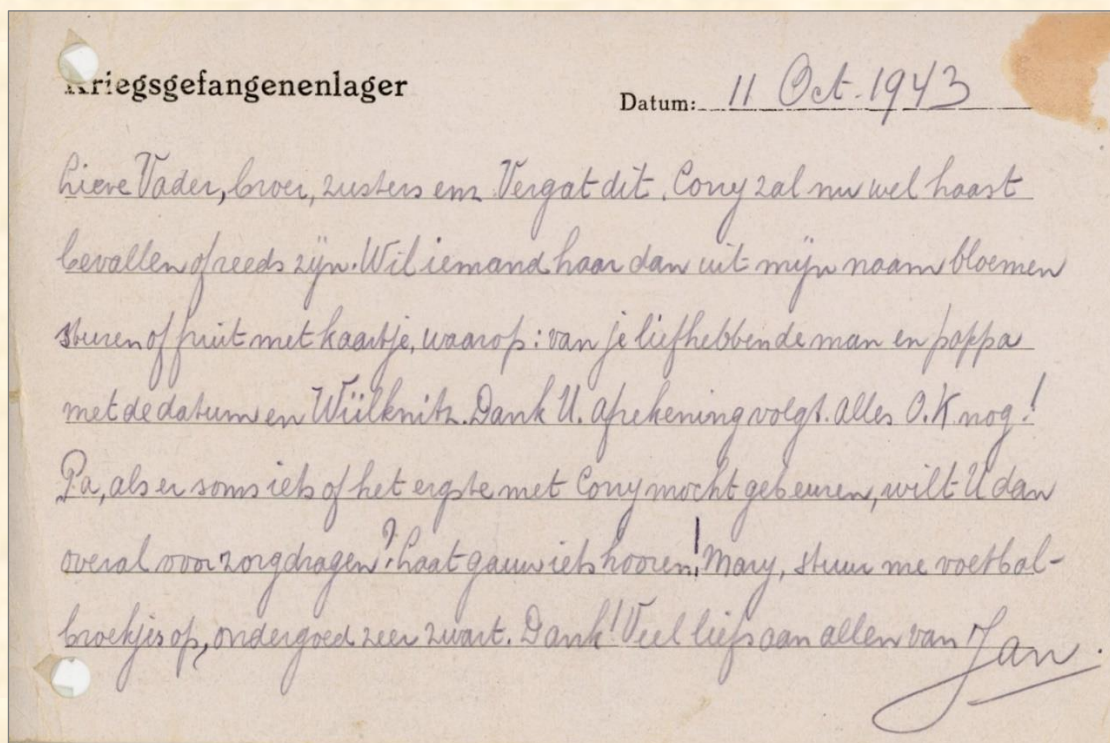 Kriegsgefangenenlager
Datum: 11 Oct. 1943
Lieve Vader, broer, zusters enz. Vergat dit. Corry zal nu wel haast
bevallen of reeds zijn. Wil iemand haar dan uit mijn naam bloemen
sturen of fruit met kaartje, waarop: van je liefhebbende man en pappa
met de datum en Wülknitz. Dank U. afrekening volgt. alles O.K. nog!
Pa, als er soms iets of het ergste met Corry mocht gebeuren, wilt U dan
overal voor zorgdragen? Laat gauw iets hooren! Mary, stuur me voetbal-
broekjes op, ondergoed zeer zwart. Dank! Veel liefs aan allen van Jan.